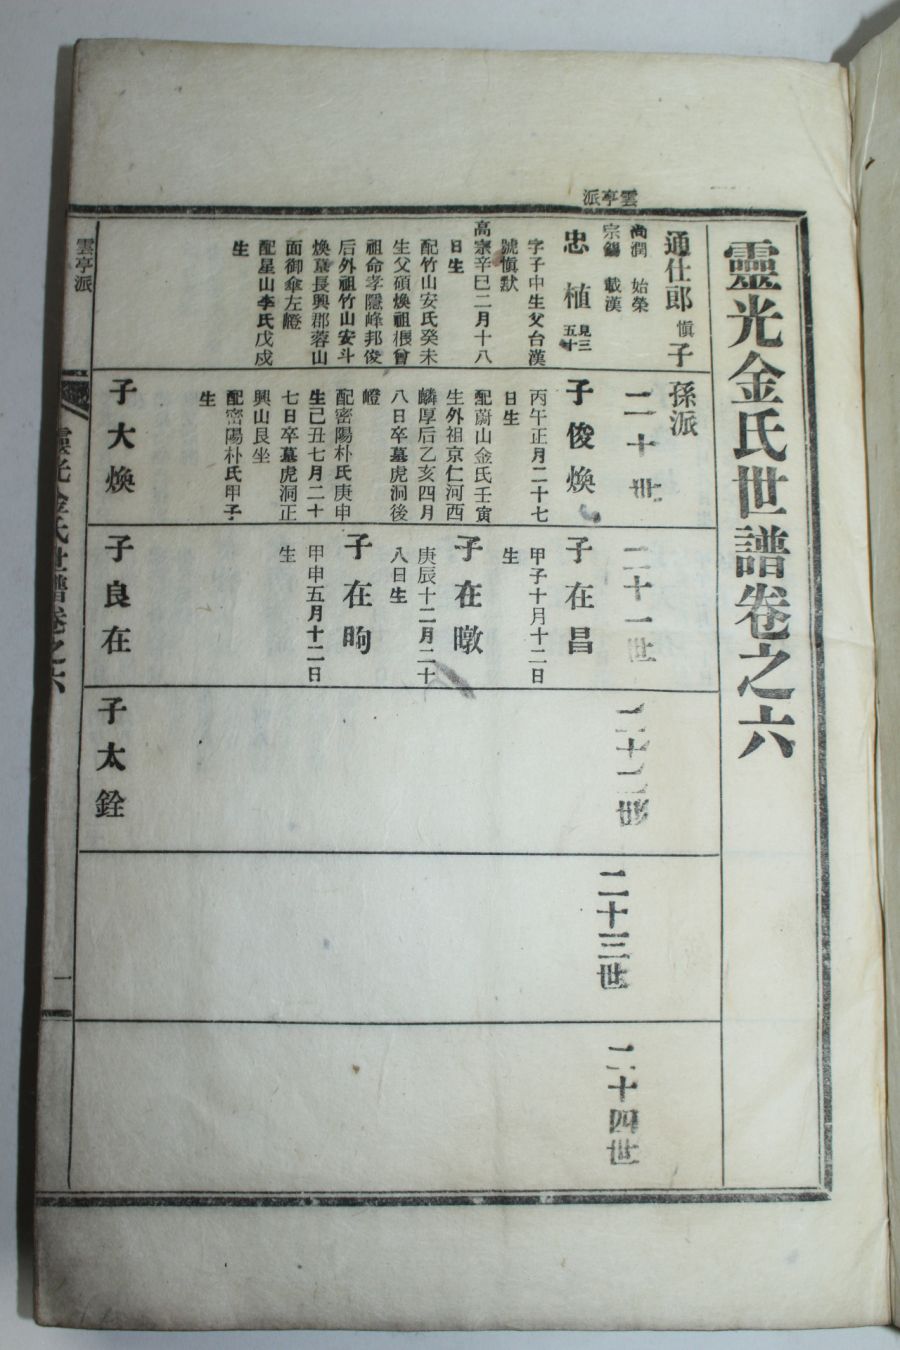 靈光金氏世譜卷之六
雲亭派
通仕郎 愼子孫派
尚潤 始榮
宗錫 載漢
忠植 見三五十
字子中生父台漢
號愼默
高宗辛巳二月十八
日生
配竹山安氏癸未
生父碩煥祖楃曾
祖命孝隱峰邦俊
后外祖竹山安斗
煥墓長興郡蓉山
面御傘左嶝
配星山李氏戊戌
生
二十世
子俊煥
丙午正月二十七
日生
配蔚山金氏壬寅
生外祖京仁河西
麟厚后乙亥四月
八日卒墓虎洞後
嶝
配密陽朴氏庚申
生己丑七月二十
七日卒墓虎洞正
興山艮坐
配密陽朴氏甲子
生
子大煥
二十一世
子在昌
甲子十月十二日
生
子在暾
庚辰十二月二十
八日生
子在昫
甲申五月十二日
生
子良在
二十二世
子太銓
二十三世
二十四世
雲亭派
靈光金氏世譜卷之六
一